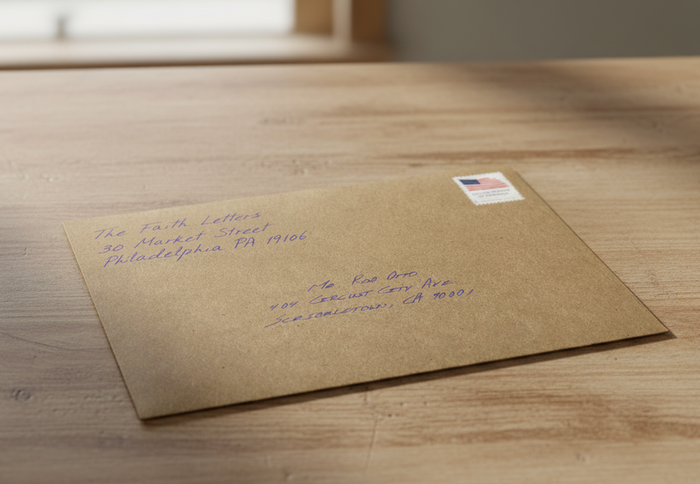 The Faith Letters
30 Market Street
Philadelphia PA 19106
Mr Rob Otto
404 Circuit City Ave
Scribbletown, CA 90001